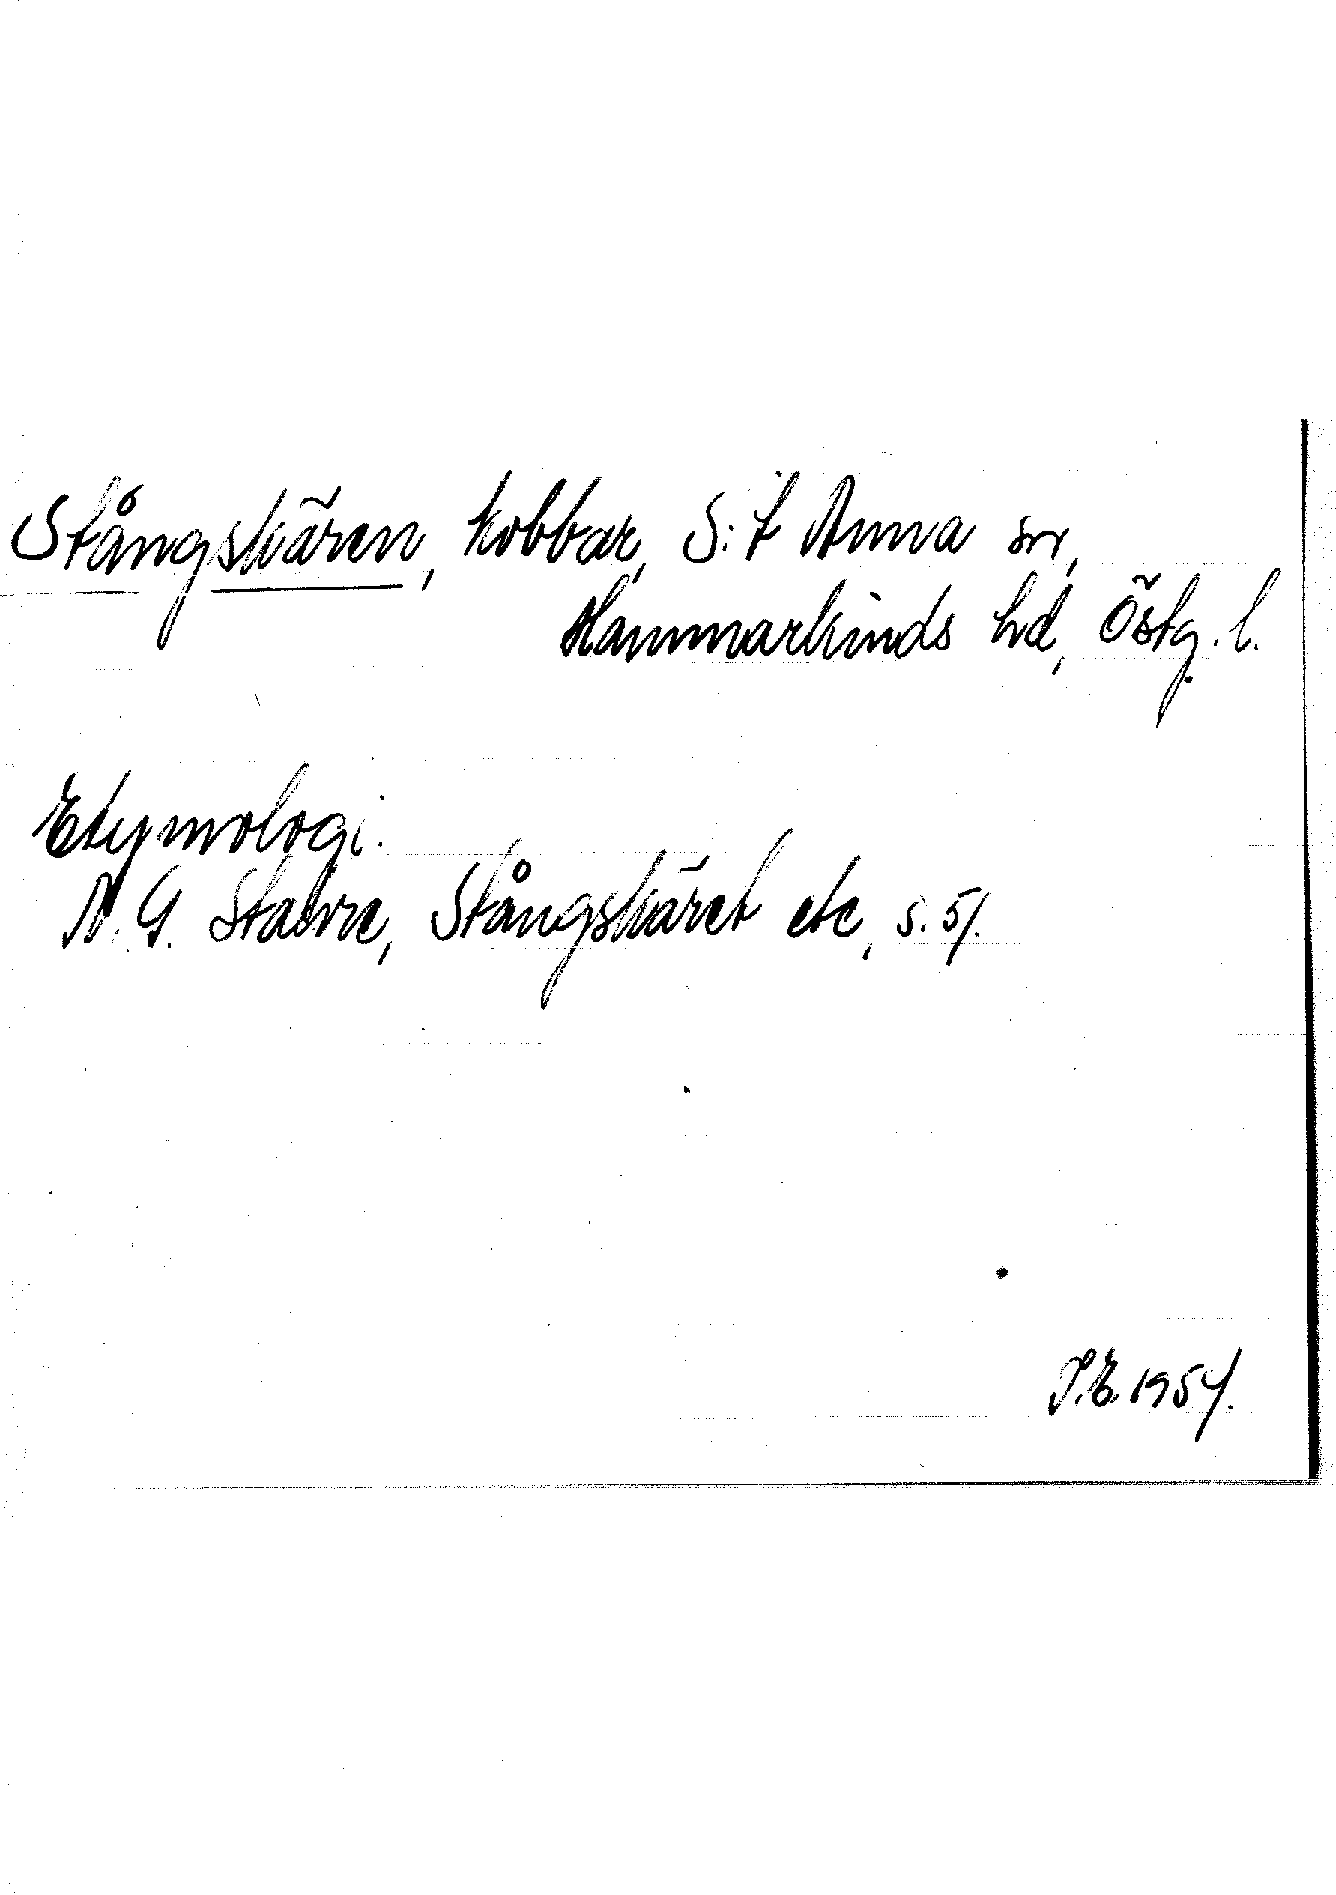 Stångskären, kobbar, S:t Anna sn,
Hammarkinds hd, Östg. l.
Etymologi.
N. G. Stahre, Stångskäret etc, s. 51.
P.E. 1954.